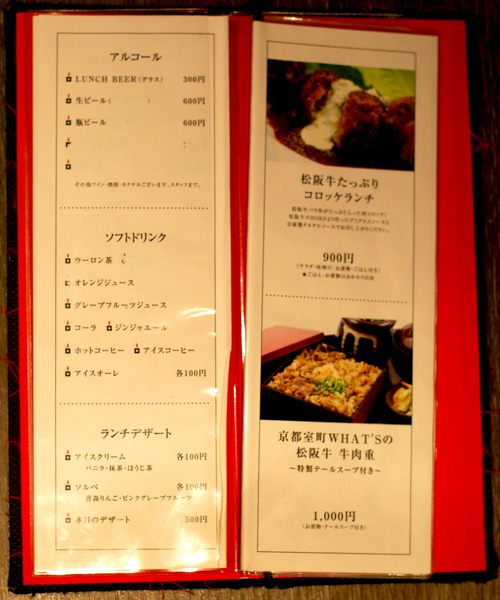 アルコール
LUNCH BEER(グラス) 300円
生ビール 600円
瓶ビール 600円
その他ワイン・焼酎・カクテルございます。スタッフまで。
ソフトドリンク
ウーロン茶
オレンジジュース
グレープフルーツジュース
コーラ ジンジャエール
ホットコーヒー アイスコーヒー
アイスオーレ 各100円
ランチデザート
アイスクリーム 各100円
バニラ・抹茶・ほうじ茶
ソルベ 各100円
青森りんご・ピンクグレープフルーツ
本日のデザート 500円
松阪牛たっぷり
コロッケランチ
松阪牛バラ肉がたっぷり入った肉コロッケ!
松阪牛のBORSより作ったデミグラスソースと
自家製タルタルソースでお召し上がりください。
900円
(サラダ・味噌汁・お漬物・ごはん付き)
★ごはん・お漬物はおかわり自由
京都室町WHAT'Sの
松阪牛 牛肉重
～特製テールスープ付き～
1,000円
(お漬物・テールスープ付き)